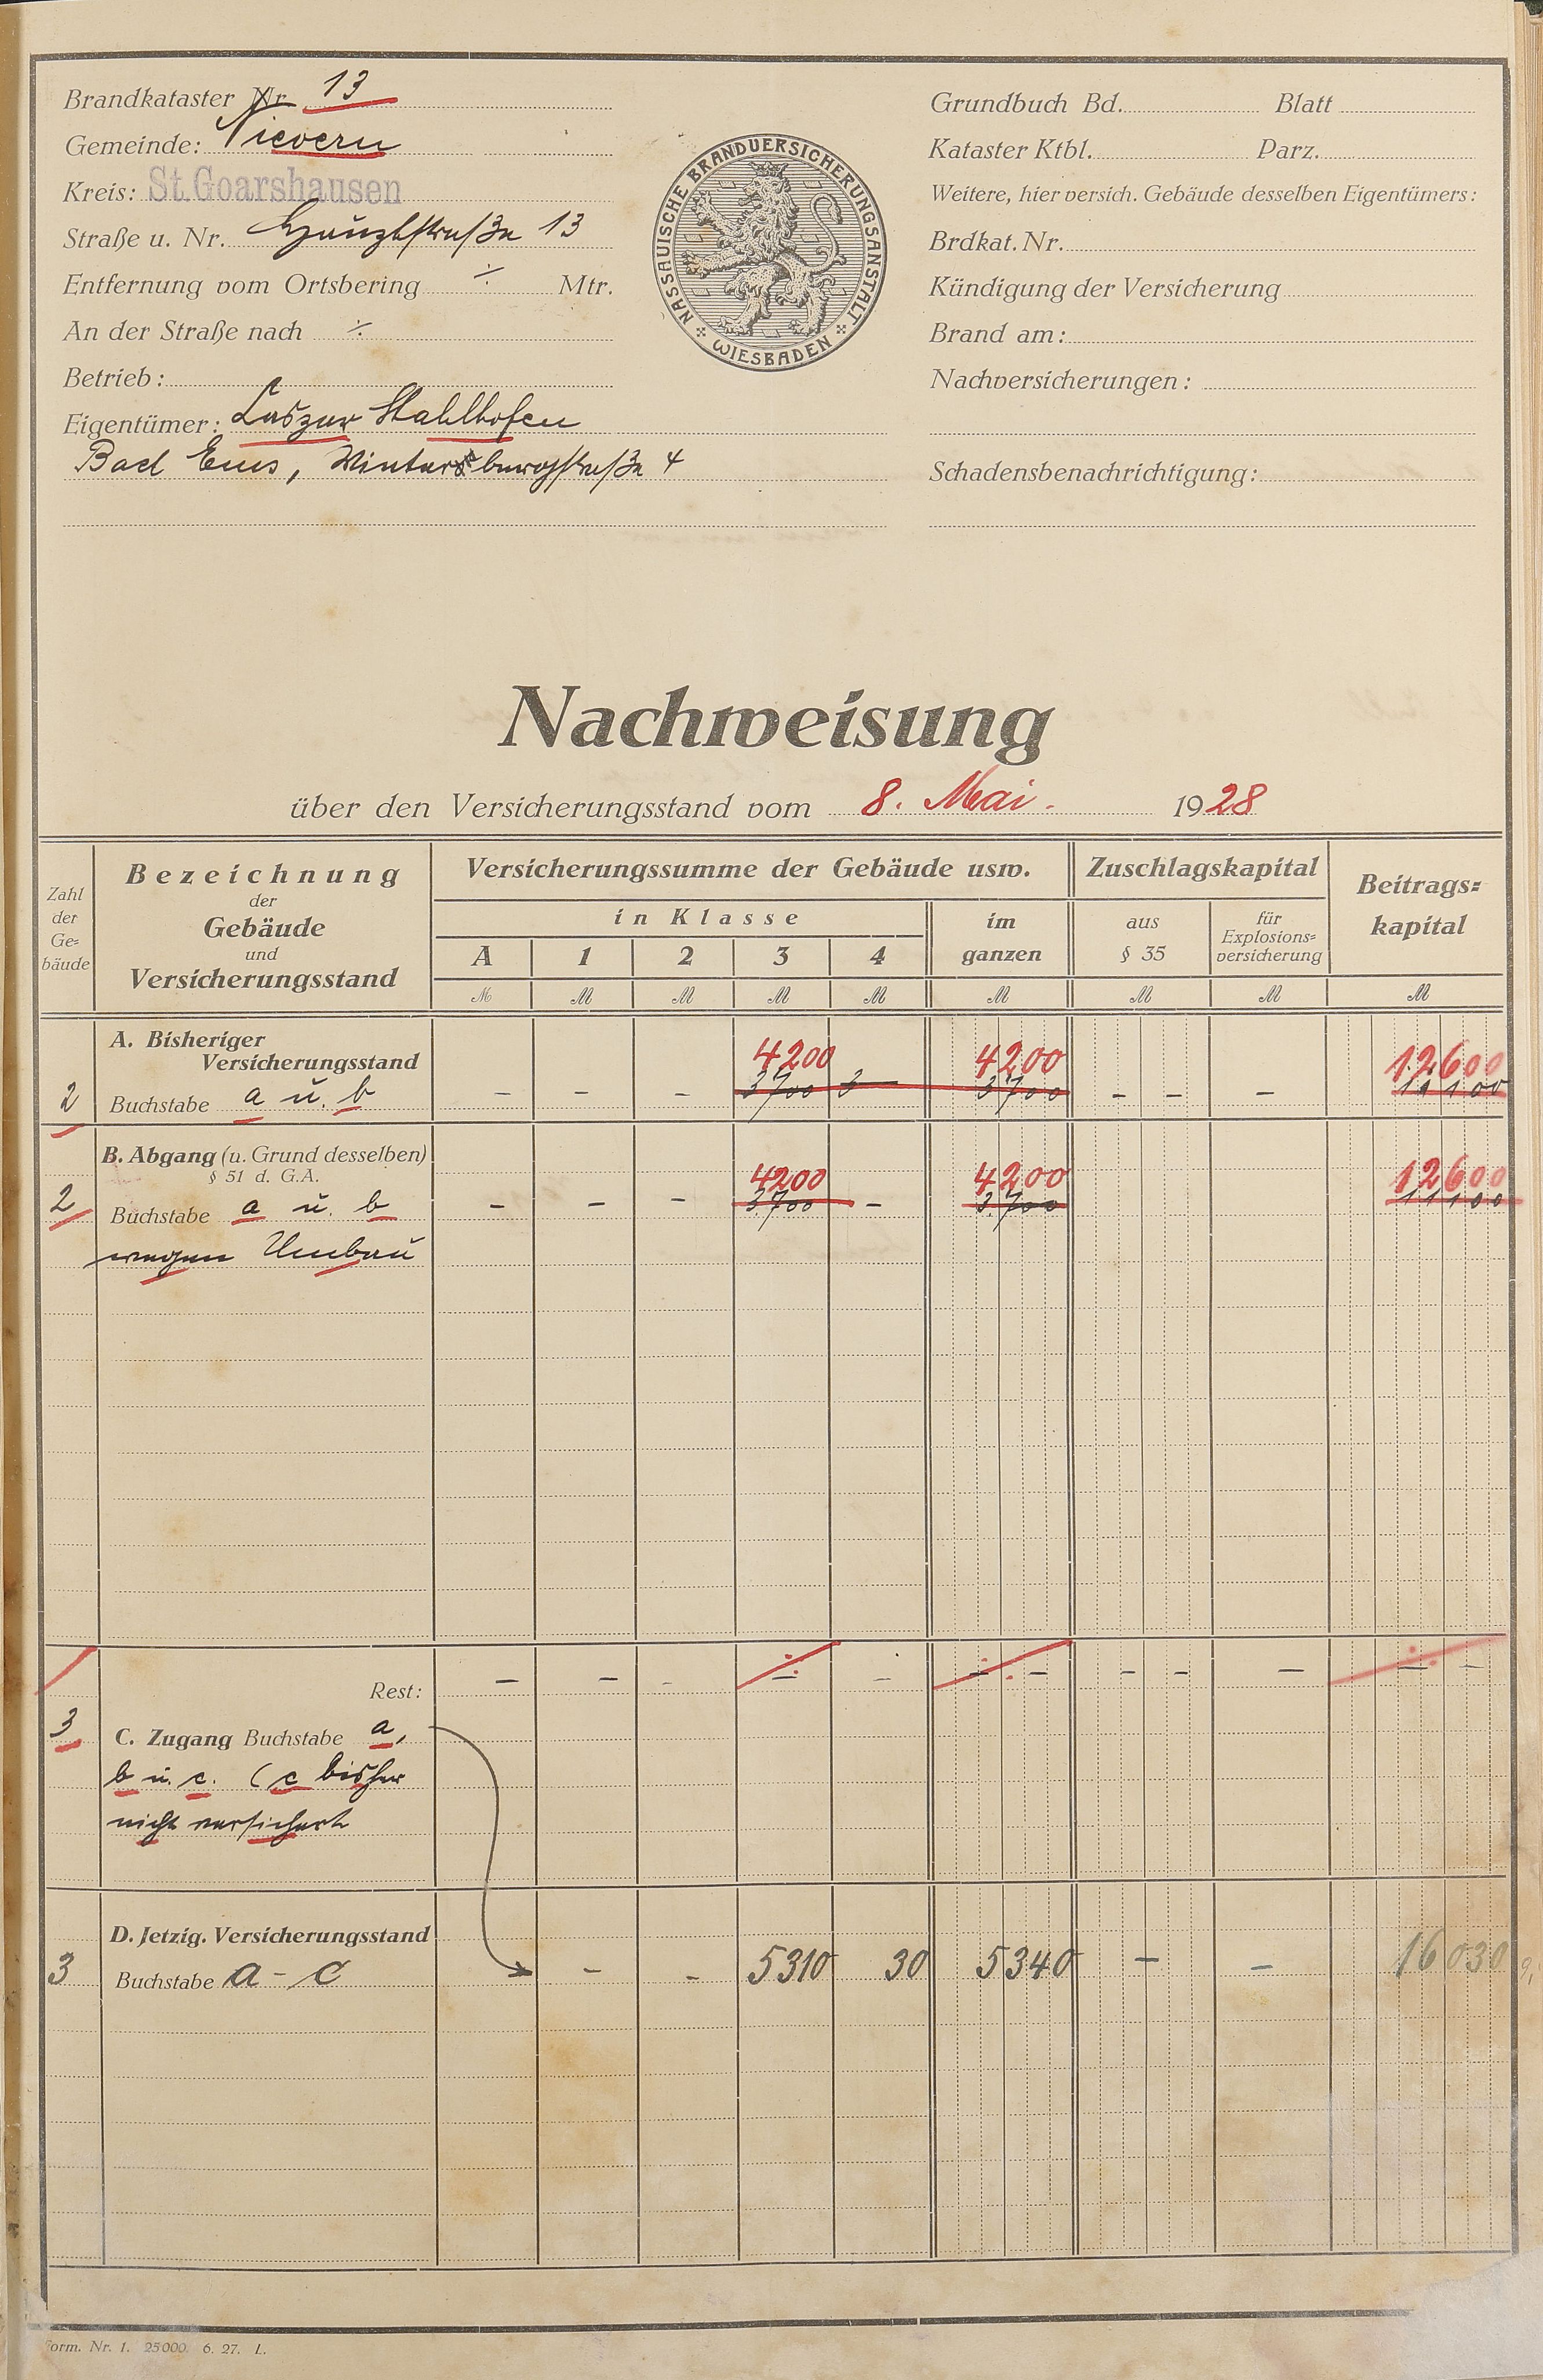 Brandkataster Nr. 13
Gemeinde: Nievern
Kreis: St. Goarshausen
Straße u. Nr. Hauptstraße 13
Entfernung vom Ortsbering ÷ Mtr.
An der Straße nach ÷
Betrieb:
Eigentümer: Stahlhofen
Bad Ems, Wintersbergstraße 4
NASSAUISCHE BRANDVERSICHERUNGSANSTALT
WIESBADEN
Grundbuch Bd. Blatt
Kataster Ktbl. Parz.
Weitere, hier versich. Gebäude desselben Eigentümers:
Brdkat. Nr.
Kündigung der Versicherung
Brand am:
Nachversicherungen:
Schadensbenachrichtigung:
Nachweisung
über den Versicherungsstand vom 8. Mai. 1928
Zahl der Ge=bäude
Bezeichnung der Gebäude und Versicherungsstand
Versicherungssumme der Gebäude usw.
in Klasse
A 1 2 3 4
im ganzen
Zuschlagskapital
aus § 35
für Explosions=versicherung
Beitrags=kapital
M M M M M M M M M
A. Bisheriger
Versicherungsstand 4200 4200 12600
2 Buchstabe a u. b - - - 3700 3 3700 - - - 11100
B. Abgang (u. Grund desselben)
§ 51 d. G.A. 4200 4200 12600
2 Buchstabe a u. b - - - 3700 - 3700 11100
wegen Umbau
Rest: - - - ÷ - ÷ - - - - ÷ -
3 C. Zugang Buchstabe a,
b u. c. (c bisher
nicht versichert
D. Jetzig. Versicherungsstand
3 Buchstabe a - c - - 5310 30 5340 - - 16030
Form. Nr. 1. 25000. 6. 27. L.